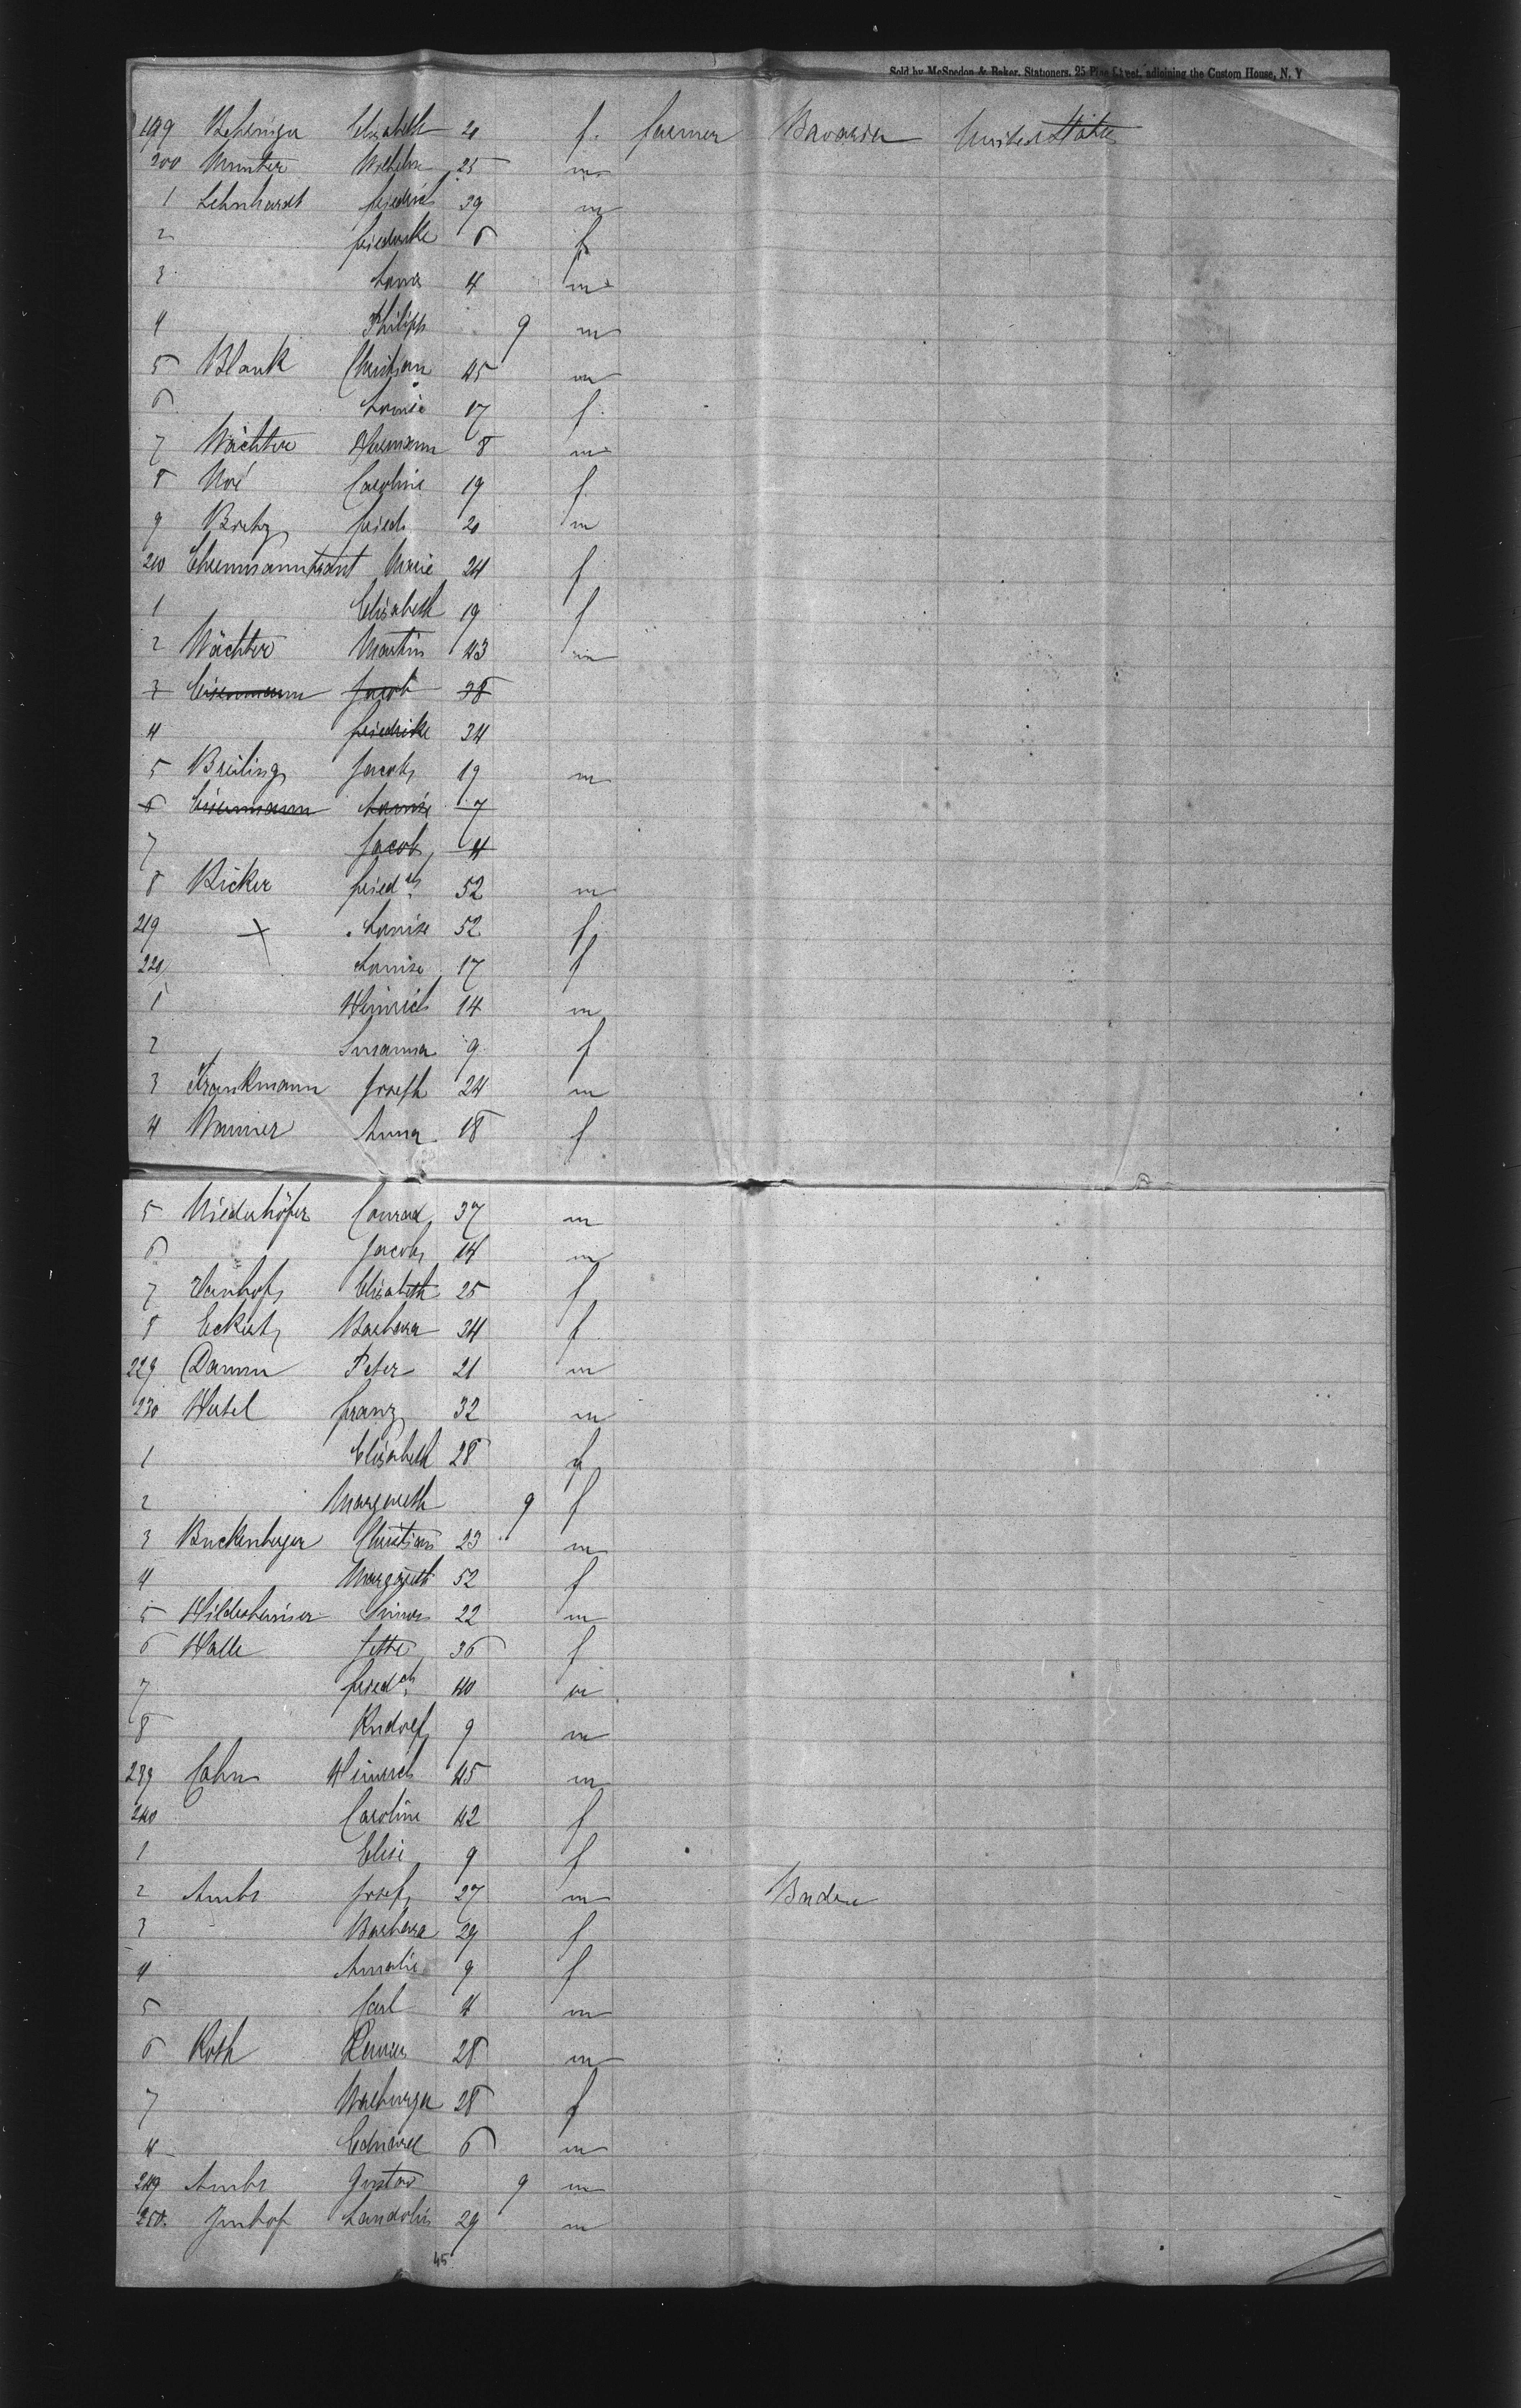 Sold by McSpedon & Baker, Stationers, 25 Pine Street, adjoining the Custom House, N. Y
199 Elisabeth 20 f. farmer Bavaria United States
200 Munter Wilhelm 25 m
1 Lehnhardt friedrich 39 m
2 friedericke 6 f
3 4 m
4 Philipp 9 m
5 Blank Christian 45 m
6 Louise 17 f
7 Wächter Hermann 8 m
8 Noé Caroline 19 f
9 fried. 20 m
210 Marie 24 f
1 Elisabeth 19 f
2 Wächter Martin 43 m
3 Eisenmann Jacob 38
4 friedrike 34
5 Breiling Jacob 19 m
6 Eisenmann Louise 7
7 Jacob 4
8 Ricker friedch 52 m
219 Louise 52 f
220 Louise 17 f
1 Heinrich 14 m
2 Susanna 9 f
3 Frankmann Joseph 24 m
4 Wanner Anna 18 f
5 Niederhöfer Conrad 37 m
6 Jacob 14 m
7 Elisabeth 25 f
8 Eckert Barbara 34 f
229 Damm Peter 21 m
230 Hertel franz 32 m
1 Elisabeth 28 f
2 Margareth 9 f
3 Buckenberger Christian 23 m
4 Margareth 52 f
5 Hildesheimer Simon 22 m
6 Halle Jette 36 f
7 friedch 40 m
8 Rudolf 9 m
239 Cahn Heinrich 45 m
240 Caroline 42 f
1 Elise 9 f
2 Ambs Josef 27 m Baden
3 Barbara 29 f
4 Amalie 9 f
5 Carl 4 m
6 Roth 28 m
7 Walburga 28 f
Eduard 6 m
249 Ambs Gustav 9 m
250. Imhof Landolin 29 m
45